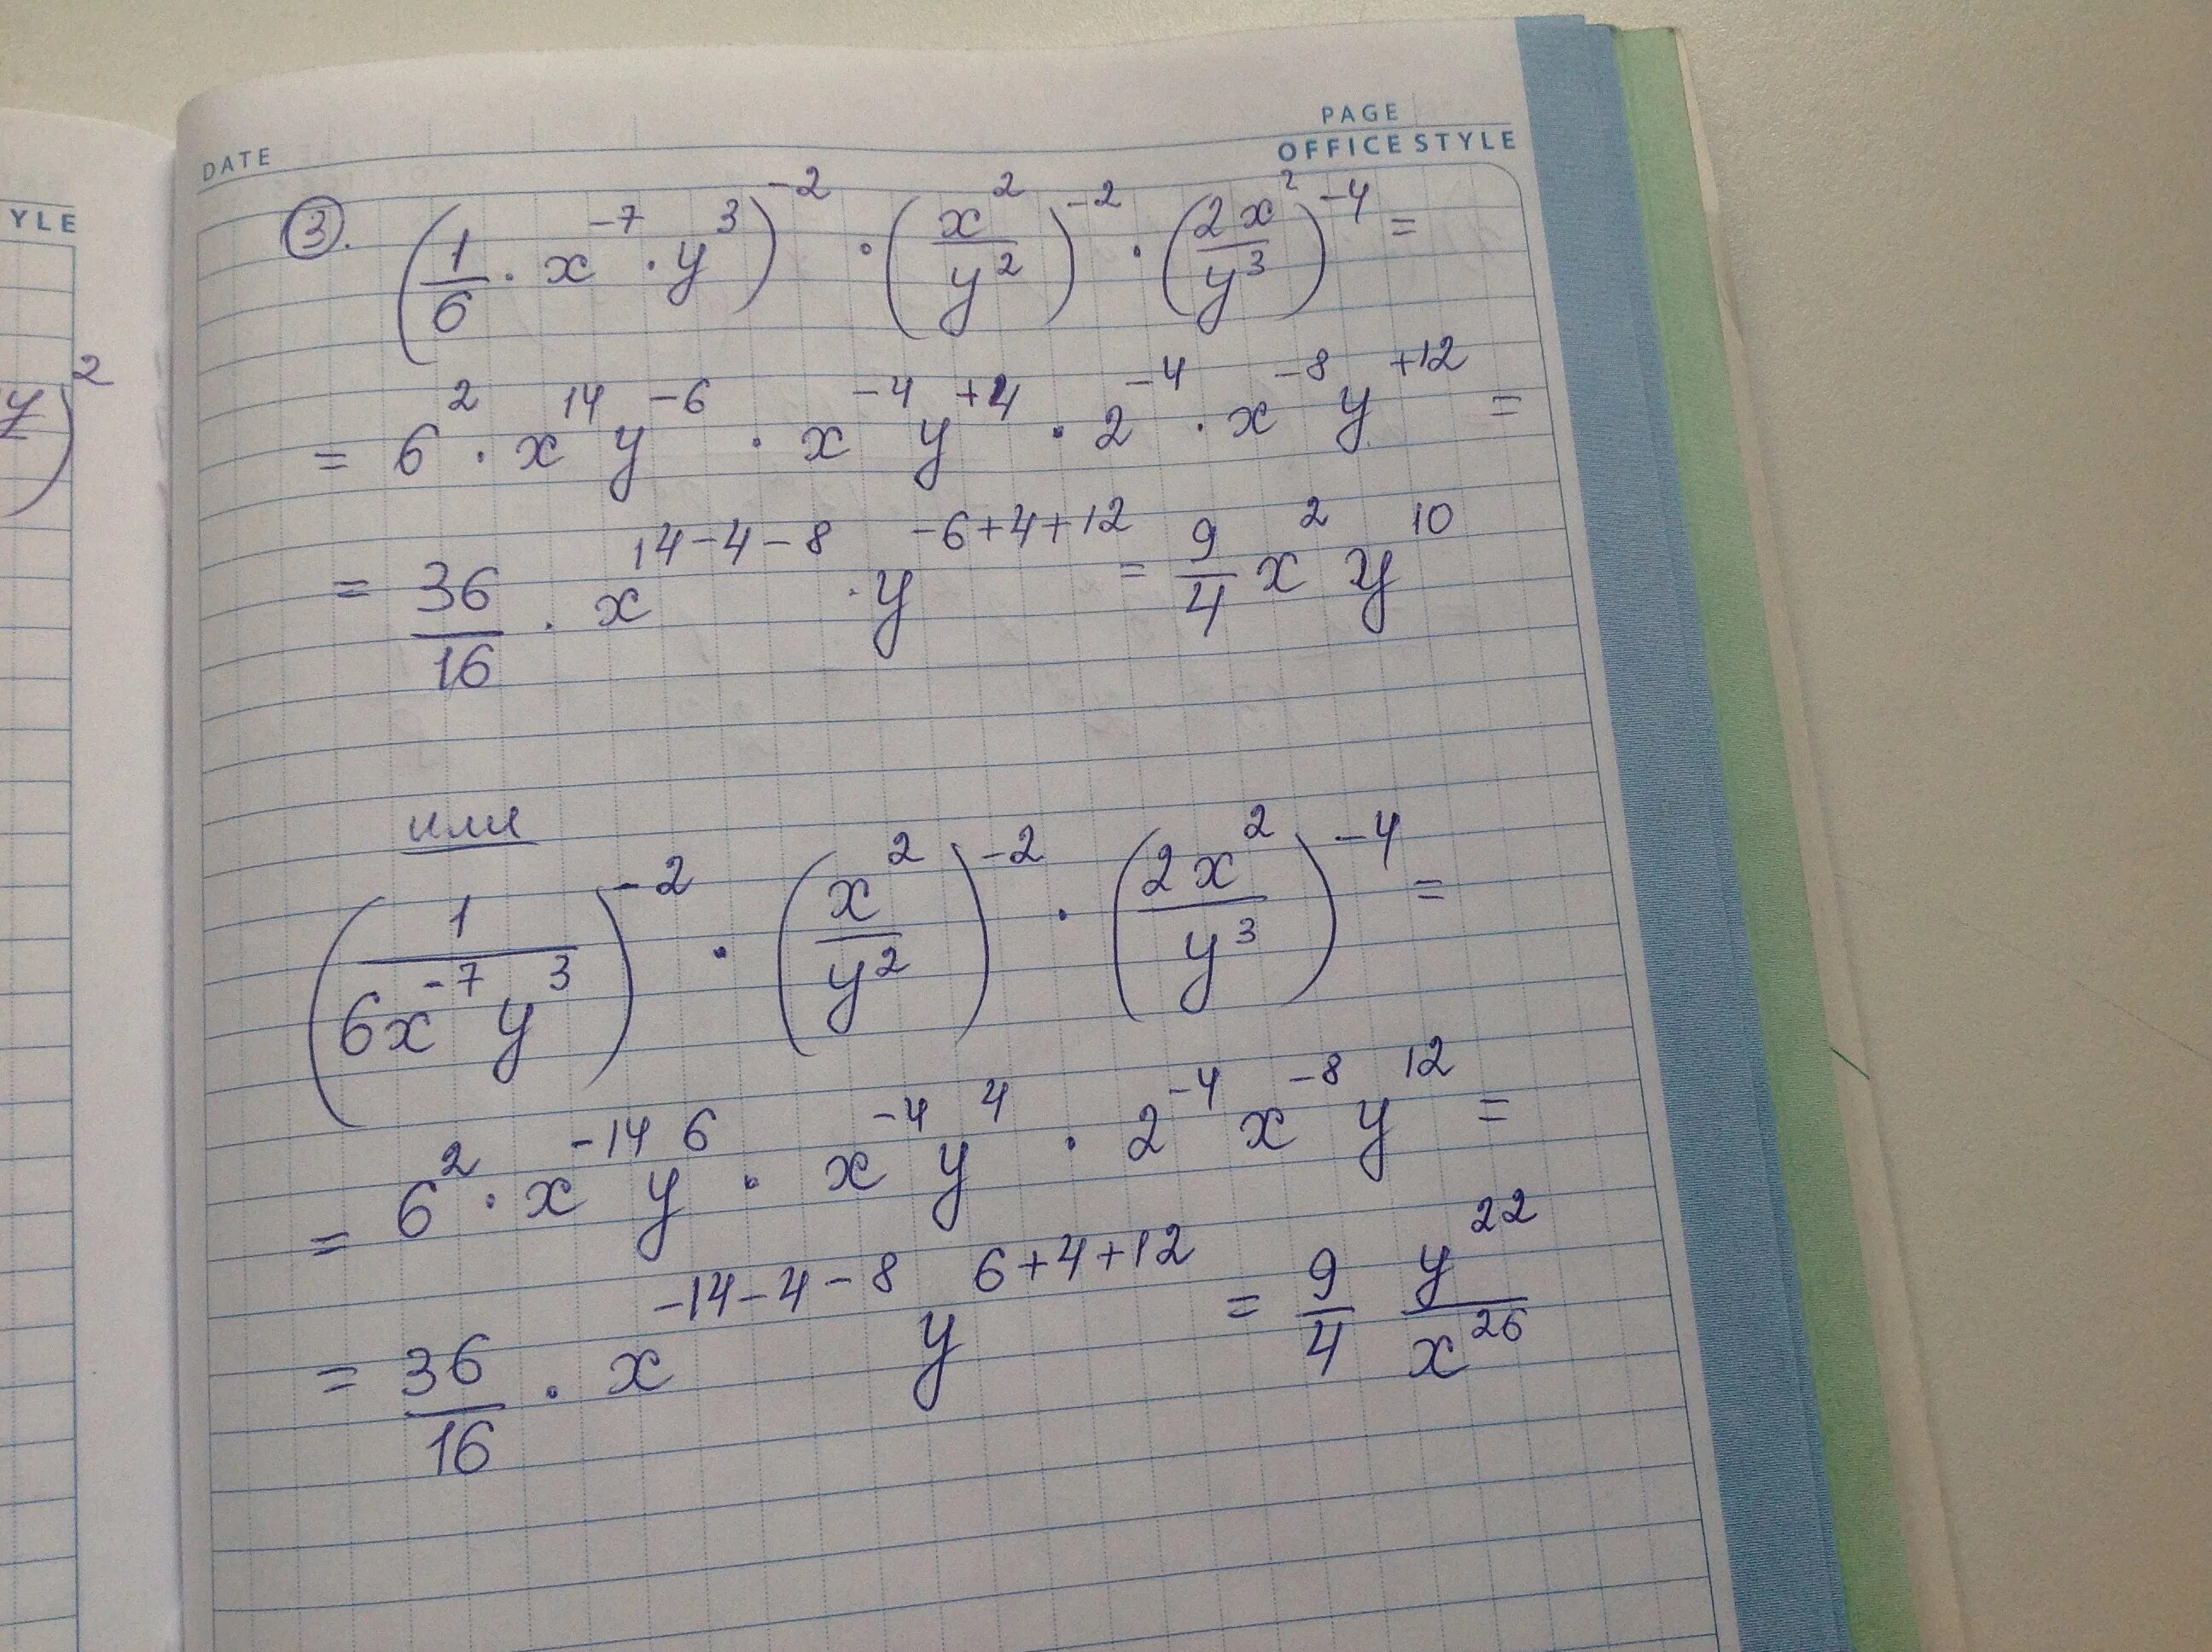 PAGE
DATE OFFICE STYLE
YLE
③. (1/6 · x^-7 · y^3)^-2 · (x^2/y^2)^-2 · (2x^2/y^3)^-4 =
y)^2
= 6^2 · x^14 y^-6 · x^-4 y^+4 · 2^-4 · x^-8 y^+12 =
= 36/16 · x^14-4-8 · y^-6+4+12 = 9/4 x^2 y^10
или
(1/6x^-7 y^3)^-2 · (x^2/y^2)^-2 · (2x^2/y^3)^-4 =
= 6^2 · x^-14 y^6 · x^-4 y^4 · 2^-4 x^-8 y^12 =
= 36/16 · x^-14-4-8 y^6+4+12 = 9/4 y^22/x^26